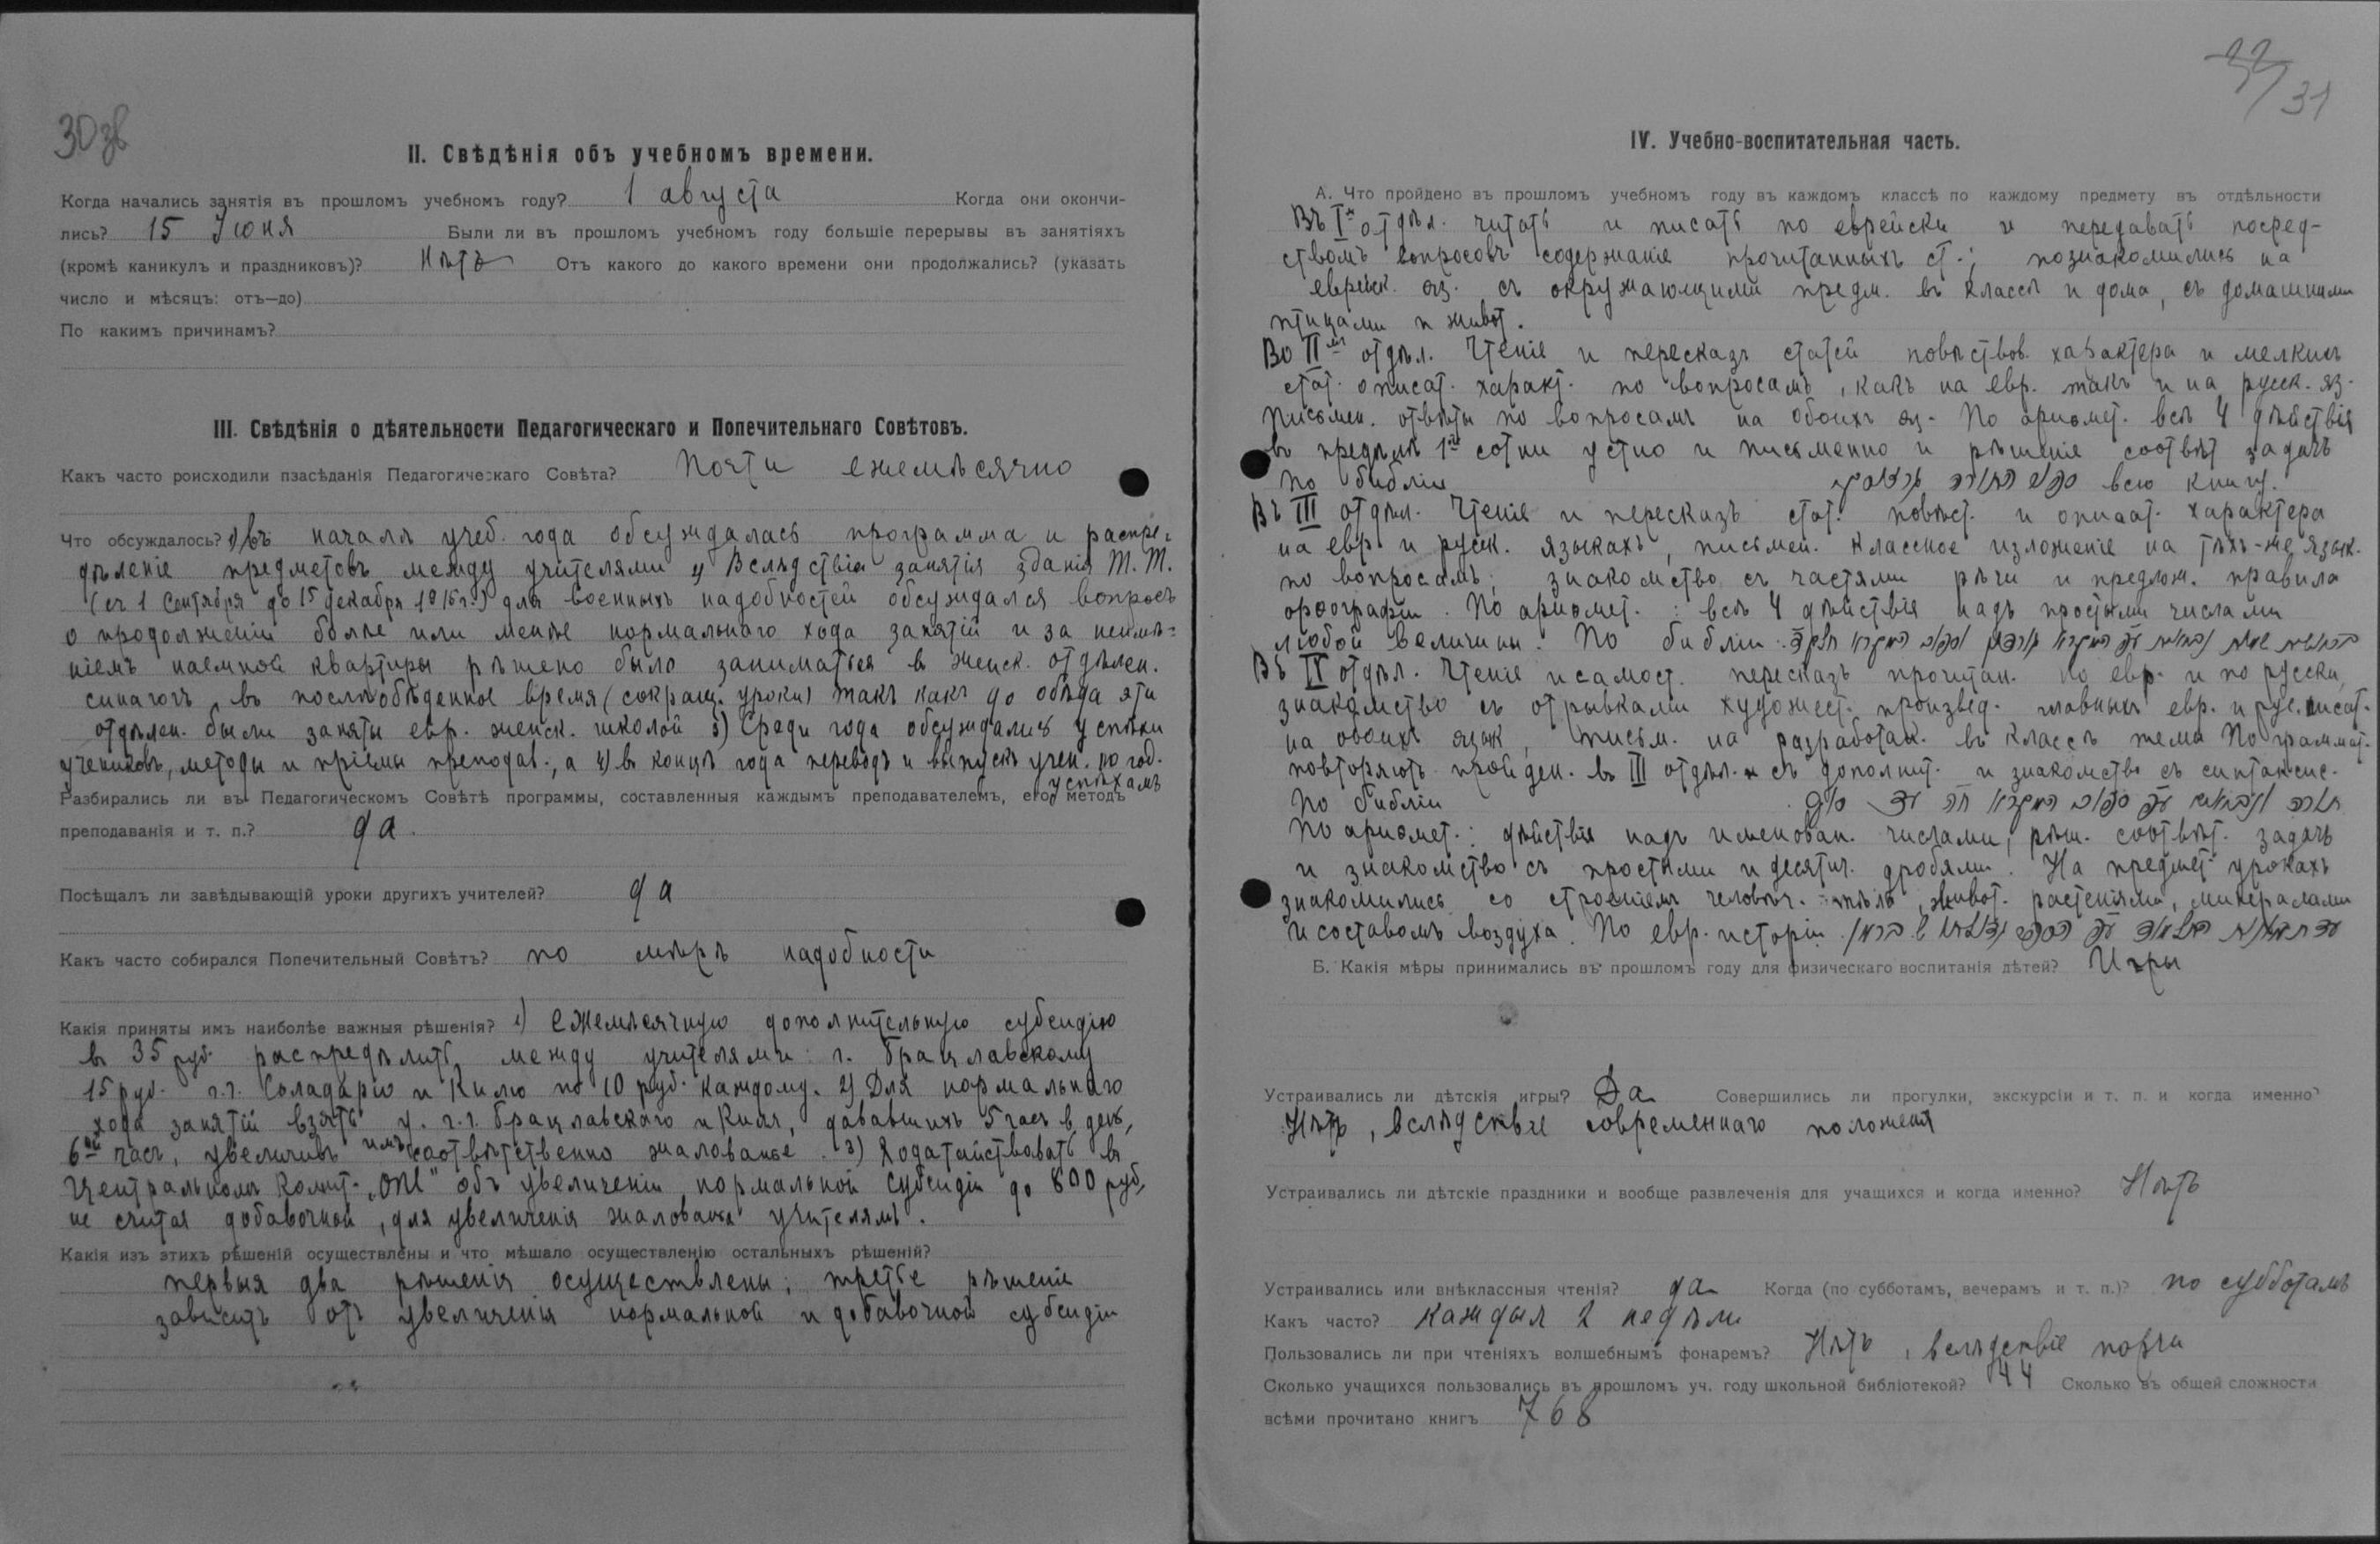 30 об
II. Свѣдѣнія объ учебномъ времени.
Когда начались занятія въ прошломъ учебномъ году? 1 августа Когда они окончи-
лись? 15 Іюня Были ли въ прошломъ учебномъ году большіе перерывы въ занятіяхъ
(кромѣ каникулъ и праздниковъ)? Нѣтъ Отъ какого до какого времени они продолжались? (указать
число и мѣсяцъ: отъ—до)
По какимъ причинамъ?
III. Свѣдѣнія о дѣятельности Педагогическаго и Попечительнаго Совѣтовъ.
Какъ часто роисходили пзасѣданія Педагогическаго Совѣта? Почти ежемѣсячно
Что обсуждалось? 1) въ началѣ учеб. года обсуждалась программа и распре=
дѣленіе предметовъ между учителями 2) Вслѣдствіи занятія зданія Т. Т.
(съ 1 Сентября до 15 декабря 1915 г.) для военныхъ надобностей обсуждался вопросъ
о продолженіи болѣе или менѣе нормальнаго хода занятій и за неимѣ=
ніемъ наемной квартиры рѣшено было заниматься в женск. отдѣлен.
синагогъ, въ послѣобѣденное время (сокращ. уроки) такъ какъ до обѣда эти
отдѣлен. были заняты евр. женск. школой 3) Среди года обсуждались успѣхи
учениковъ, методы и пріемы преподав., а 4) в концѣ года переводъ и выпускъ учен. по год.
успѣхамъ
Разбирались ли въ Педагогическомъ Совѣтѣ программы, составленныя каждымъ преподавателемъ, его методъ
преподаванія и т. п.? да.
Посѣщалъ ли завѣдывающій уроки другихъ учителей? да
Какъ часто собирался Попечительный Совѣтъ? по мѣрѣ надобности
Какія приняты имъ наиболѣе важныя рѣшенія? 1) ежемѣсячную дополнительную субсидію
в 35 руб. распредѣлить между учителями: г. Брацлавскому
15 руб. г.г. Соладарю и Килю по 10 руб. каждому. 2) Для нормальнаго
хода занятій взять у г.г. Брацлавскаго и Киля, дававшихъ 5 час. в день,
6ой часъ, увеличивъ имъ соотвѣтственно жалованье. 3) Ходатайствовать въ
Центральномъ Комит. „ОПЕ" объ увеличеніи нормальной субсидіи до 800 руб.,
не считая добавочной, для увеличенія жалованья учителямъ.
Какія изъ этихъ рѣшеній осуществлены и что мѣшало осуществленію остальныхъ рѣшеній?
первыя два рѣшенія осуществлены; третье рѣшеніе
зависитъ отъ увеличенія нормальной и добавочной субсидіи
31
IV. Учебно-воспитательная часть.
А. Что пройдено въ прошломъ учебномъ году въ каждомъ классѣ по каждому предмету въ отдѣльности
Въ Iм отдѣл. читать и писать по еврейски и передавать посред-
ствомъ вопросовъ содержаніе прочитанныхъ ст.; познакомились на
еврейск. яз. съ окружающими предм. въ классѣ и дома, съ домашними
птицами и живот.
Во IIмъ отдѣл. Чтеніе и пересказъ статей повѣствов. характера и мелкихъ
стат. описат. характ. по вопросамъ, какъ на евр. такъ и на русск. яз.
Письмен. отвѣты по вопросамъ на обоихъ яз. По ариѳмет. всѣ 4 дѣйствія
въ предѣлѣ 1ой сотни устно и письменно и рѣшеніе соотвѣт задачъ
По библіи всю книгу.
Въ III отдѣл. Чтеніе и пересказъ стат. повѣст. и описат. характера
на евр. и русск. языкахъ, письмен. классное изложеніе на тѣхъ-же язык.
по вопросамъ; знакомство съ частями рѣчи и предлож. правила
орѳографіи. По ариѳмет.: всѣ 4 дѣйствія надъ простыми числами
любой величины. По библіи:
Въ IV отдѣл. Чтеніе и самост. пересказъ прочитан. по евр. и по русски,
знакомство съ отрывками художест. произвед. главныхъ евр. и рус. писат.
на обоихъ язык, письм. на разработан. въ классѣ темы По граммат.
повторяютъ пройден. въ III отдѣл. и съ дополнит. и знакомство съ синтаксис.
По библіи
По ариѳмет.: дѣйствія надъ именован. числами, рѣш. соотвѣт. задачъ
и знакомство съ простыми и десятич. дробями. На предмет. урокахъ
знакомились со строеніемъ человѣч. тѣла, живот. растеніями, минералами
и составомъ воздуха. По евр. исторіи
Б. Какія мѣры принимались въ прошломъ году для физическаго воспитанія дѣтей? Игры
Устраивались ли дѣтскія игры? Да Совершились ли прогулки, экскурсіи и т. п. и когда именно?
Нѣтъ, вслѣдствіе современнаго положенія
Устраивались ли дѣтскіе праздники и вообще развлеченія для учащихся и когда именно? Нѣтъ
Устраивались или внѣклассныя чтенія? да Когда (по субботамъ, вечерамъ и т. п.)? по субботамъ
Какъ часто? каждыя 2 недѣли
Пользовались ли при чтеніяхъ волшебнымъ фонаремъ? Нѣтъ, вслѣдствіе порчи
Сколько учащихся пользовались въ прошломъ уч. году школьной библіотекой? 44 Сколько въ общей сложности
всѣми прочитано книгъ 768